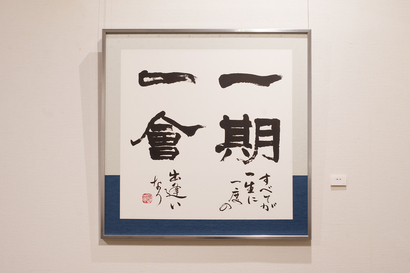 一期
一會
すべてが
一生に
一度の
出逢い
なり